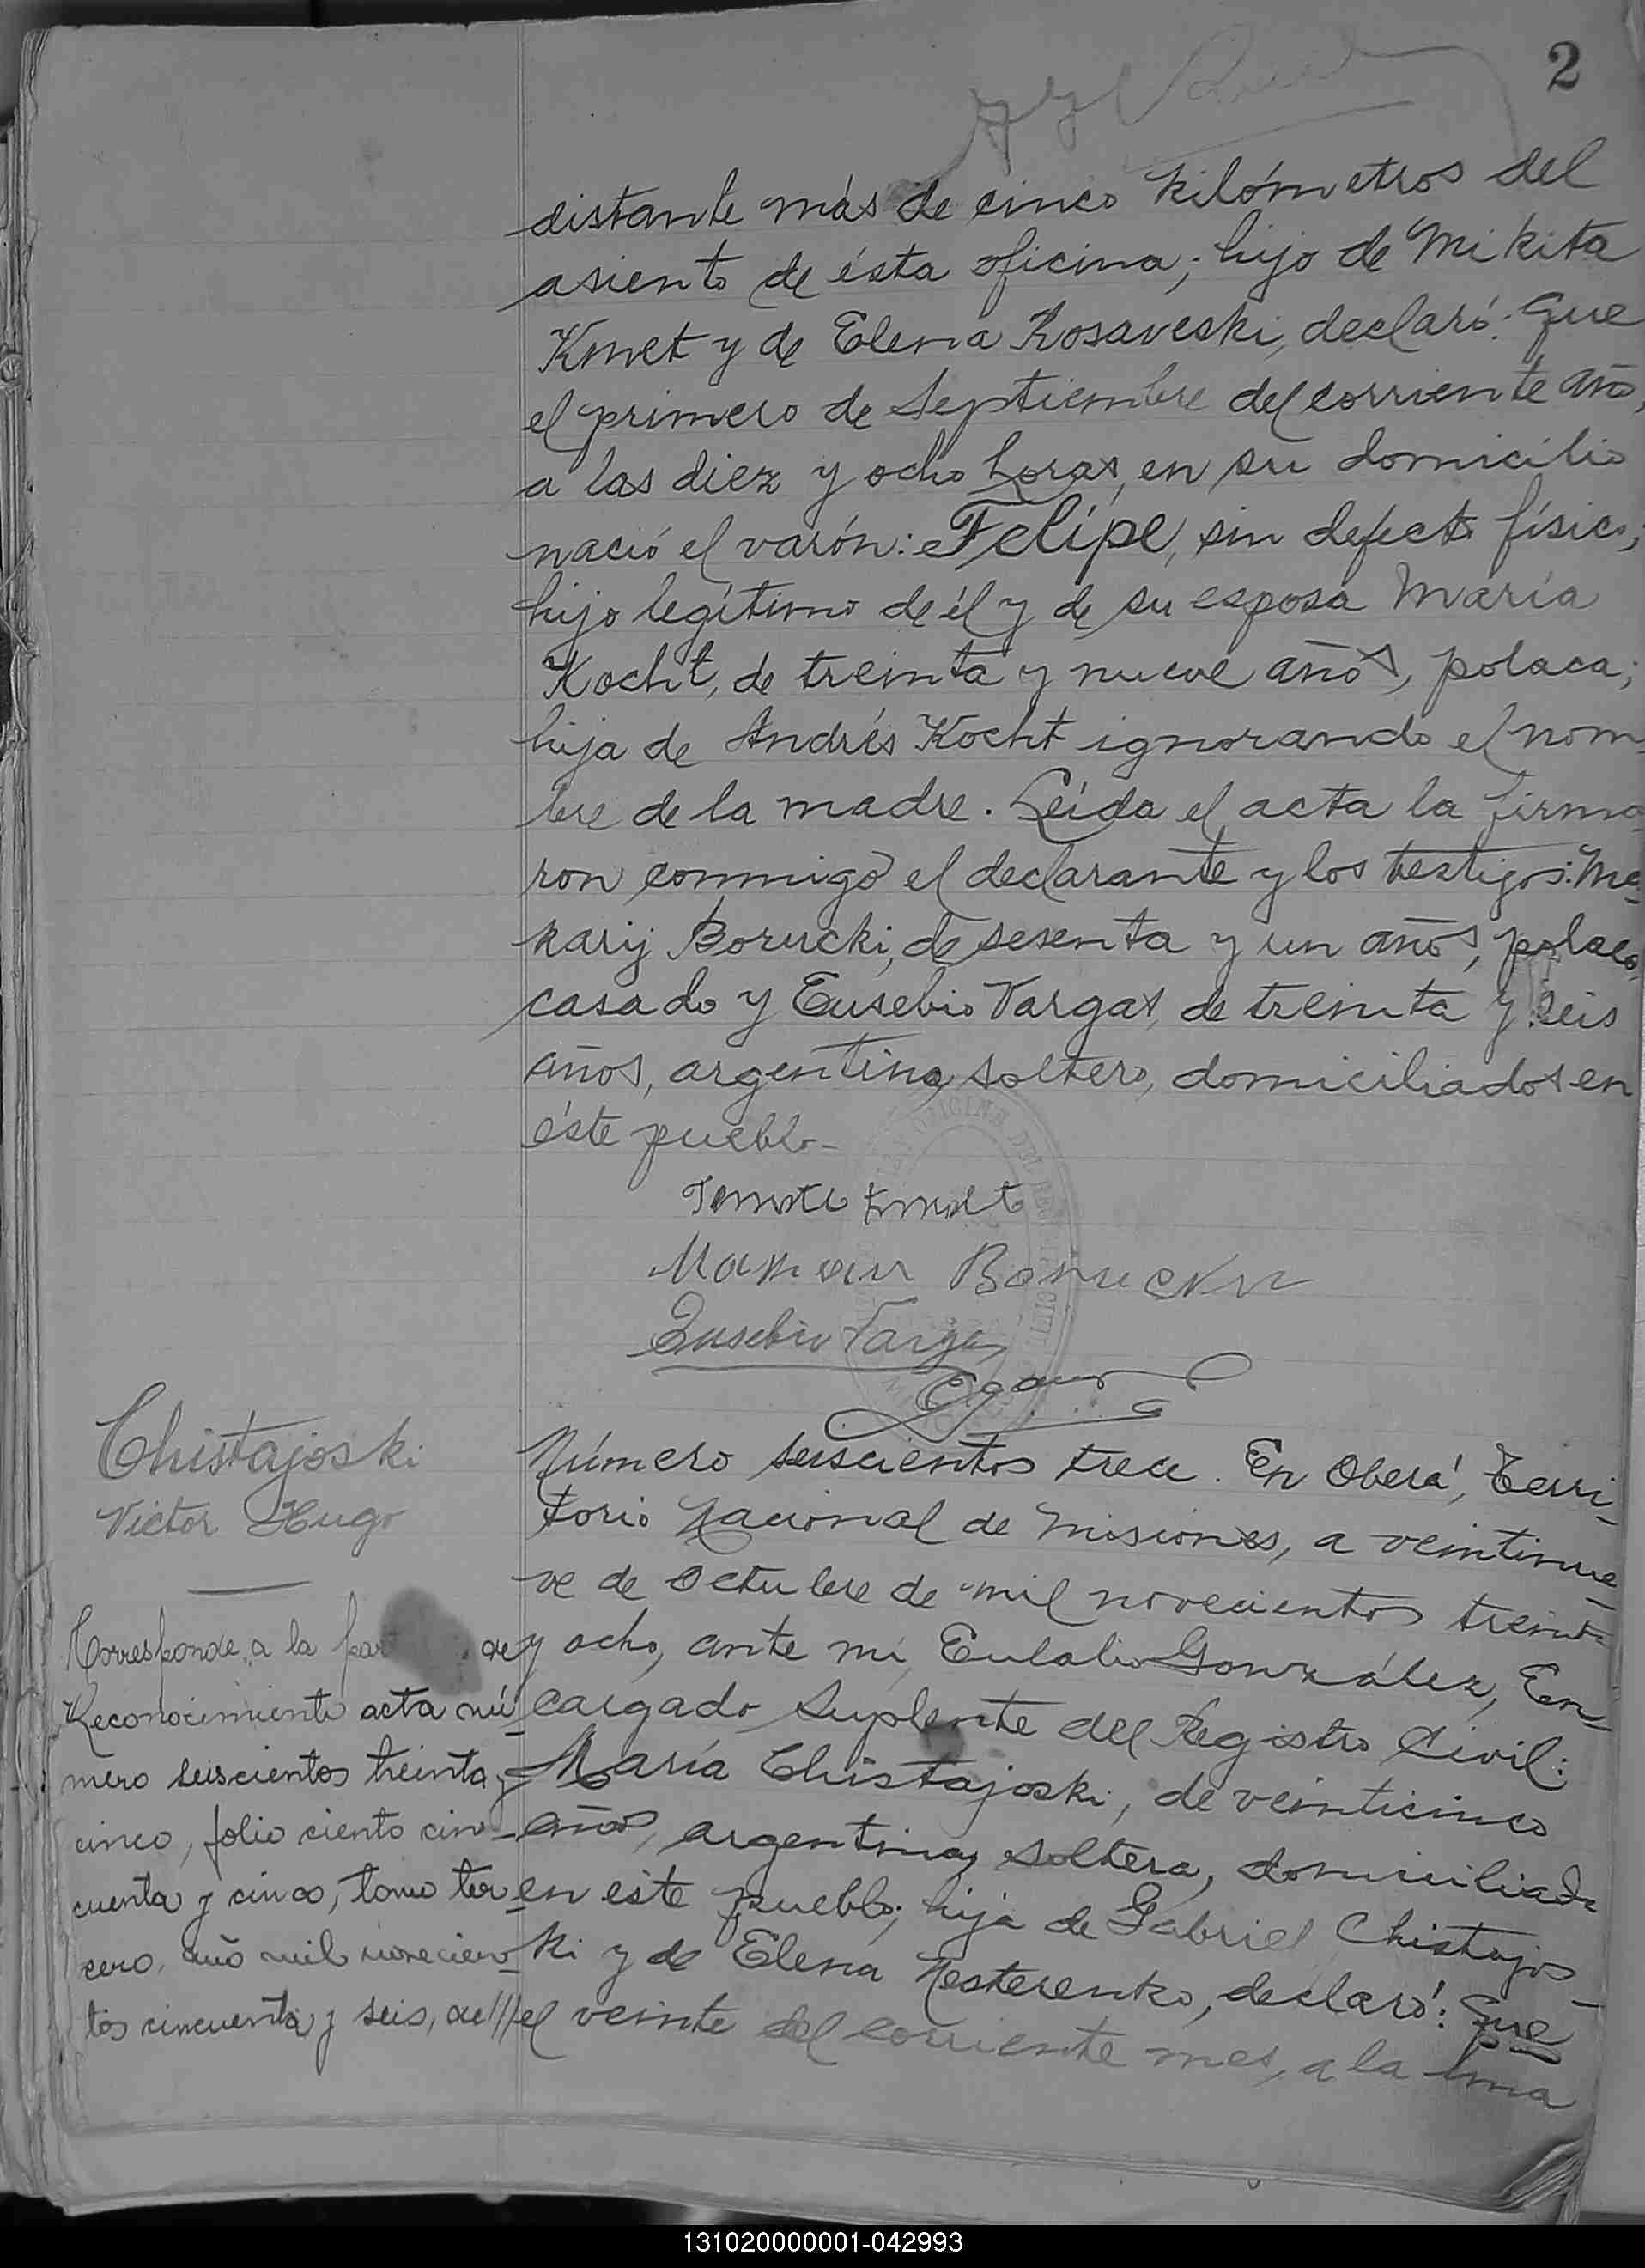 2
distante más de cinco kilómetros del
asiento de ésta oficina; hijo de Mikita
Kmet y de Elena Kosaveski, declaró: Que
el primero de Septiembre del corriente año,
a las diez y ocho horas, en su domicilio
nació el varón: Felipe, sin defecto físico;
hijo legítimo de él y de su esposa María
Kocht, de treinta y nueve años, polaca;
hija de Andrés Kocht ignorando el nom
bre de la madre. Leída el acta la firma
ron conmigo el declarante y los testigos: Ma-
karij Borucki, de sesenta y un años, polaco,
casado y Eusebio Vargas, de treinta y seis
años, argentino, soltero, domiciliados en
éste pueblo-
Kmet
Eusebio Vargas
Chistajoski
Victor Hugo
Corresponde a la de
Reconocimiento acta nú-
mero seiscientos treinta y
cinco, folio ciento cin-
cuenta y cinco, tomo ter-
cero, año mil novecien-
tos cincuenta y seis, de///
Número seiscientos trece. En Oberá, Terri-
torio Nacional de Misiones, a veintinue-
ve de Octubre de mil novecientos treinta
y ocho, ante mí, Eulalio González, En-
cargado Suplente del Registro Civil:
María Chistajoski, de veinticinco
años, argentina, soltera, domiciliada
en este pueblo; hija de Gabriel Chistajos-
ki y de Elena Nesterenko, declaró: Que
el veinte del corriente mes, a la una
131020000001-042993